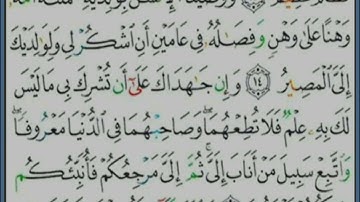 وَهْنًا عَلَىٰ وَهْنٍ وَفِصَٰلُهُۥ فِى عَامَيْنِ أَنِ ٱشْكُرْ لِى وَلِوَٰلِدَيْكَ
إِلَىَّ ٱلْمَصِيرُ ۝١٤ وَإِن جَٰهَدَاكَ عَلَىٰٓ أَن تُشْرِكَ بِى مَا لَيْسَ
لَكَ بِهِۦ عِلْمٌ فَلَا تُطِعْهُمَا ۖ وَصَاحِبْهُمَا فِى ٱلدُّنْيَا مَعْرُوفًا ۖ
وَٱتَّبِعْ سَبِيلَ مَنْ أَنَابَ إِلَىَّ ۚ ثُمَّ إِلَىَّ مَرْجِعُكُمْ فَأُنَبِّئُكُم